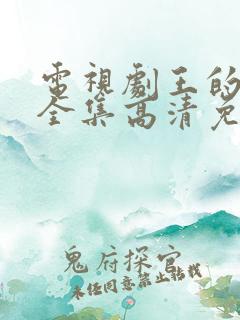 電視劇王的
全集高清免
鬼府探宮
未經同意禁止轉載